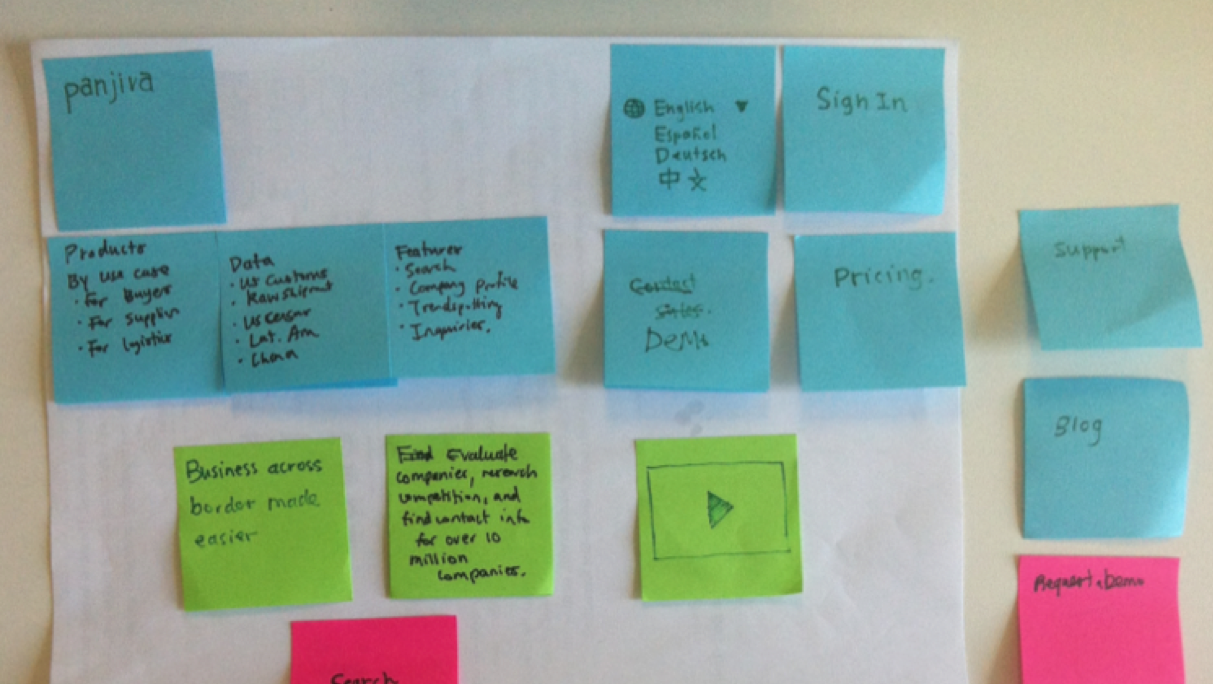 panjiva
English ▼
Español
Deutsch
中文
Sign In
Products
By use case
• For Buyers
• For Suppliers
• For Logistics
Data
• US Customs
• Raw Shipment
• US Census
• Lat. Am
• China
Features
• Search
• Company Profile
• Trendspotting
• Inquiries.
Contact
Sales.
Demo
Pricing.
Support
Blog
Business across
border made
easier
Find Evaluate
companies, research
competition, and
find contact info
for over 10
million
companies.
Request a Demo
Search